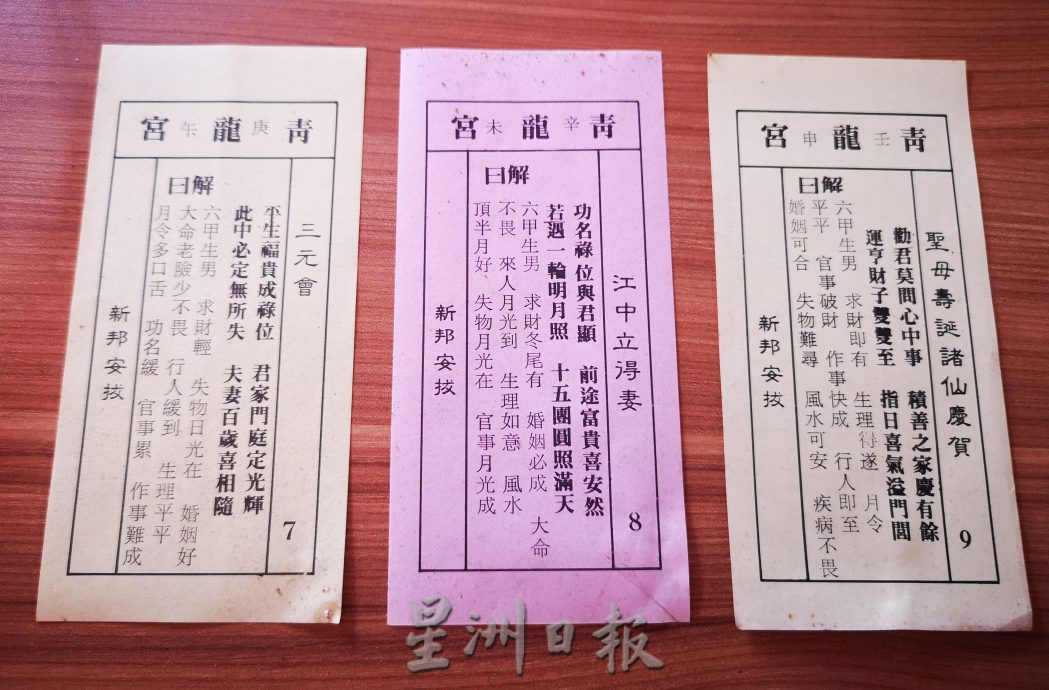 青龍宮
庚午
三元會
7
平生福貴成祿位 君家門庭定光輝
此中必定無所失 夫妻百歲喜相隨
解曰
六甲生男 求財輕 失物日光在 婚姻好
大命老險少不畏 行人緩到 生理平平
月令多口舌 功名緩 官事累 作事難成
新邦安拔
青龍宮
辛未
江中立得妻
8
功名祿位與君顯 前途富貴喜安然
若遇一輪明月照 十五團圓照滿天
解曰
六甲生男 求財冬尾有 婚姻必成 大命
不畏 來人月光到 生理如意 風水
頂半月好 失物月光在 官事月光成
新邦安拔
青龍宮
壬申
聖母壽誕諸仙慶賀
9
勸君莫問心中事 積善之家慶有餘
運亨財子雙雙至 指日喜氣溢門閭
解曰
六甲生男 求財即有 生理得遂 月令
平平 官事破財 作事快成 行人即至
婚姻可合 失物難尋 風水可安 疾病不畏
新邦安拔
星洲日報